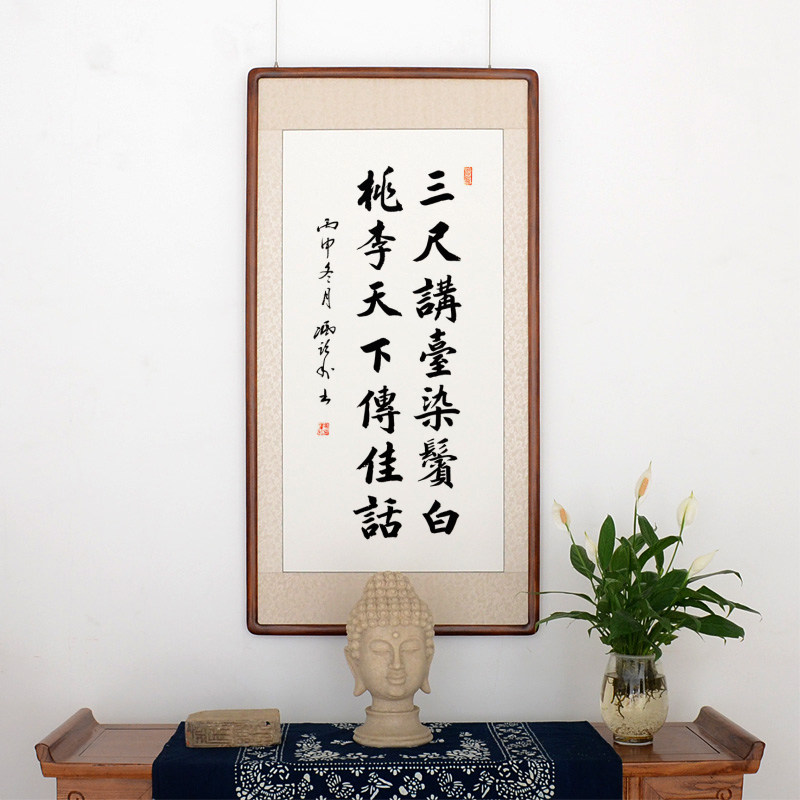 三尺講臺染鬢白
桃李天下傳佳話
丙申冬月